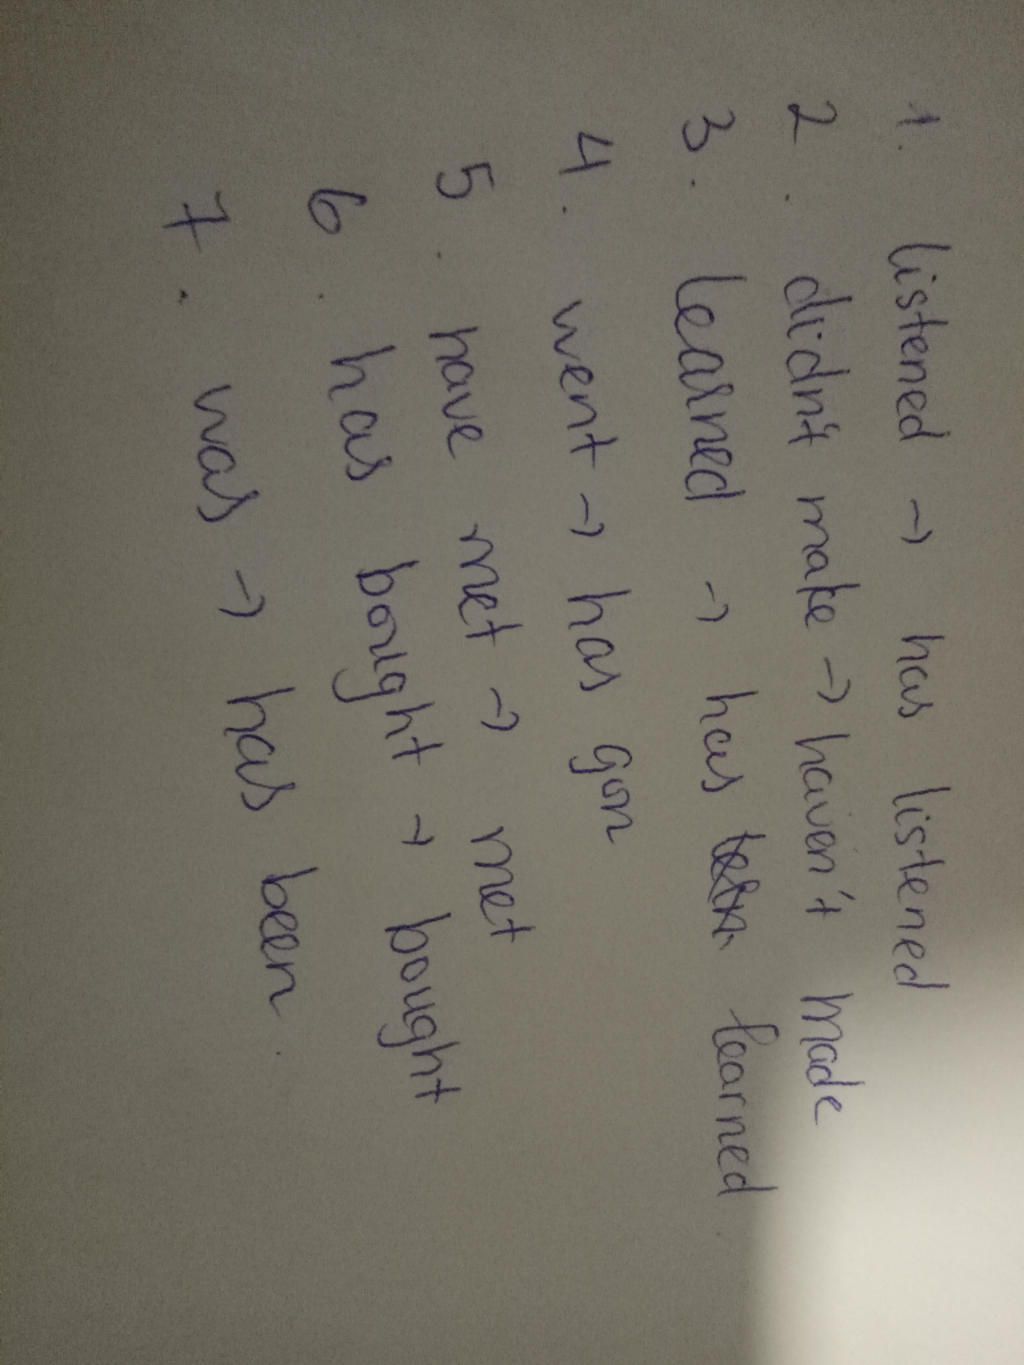 1. listened → has listened
2. didn't make → haven't made
3. learned → has learned
4. went → has gon
5. have met → met
6. has bought → bought
7. was → has been.